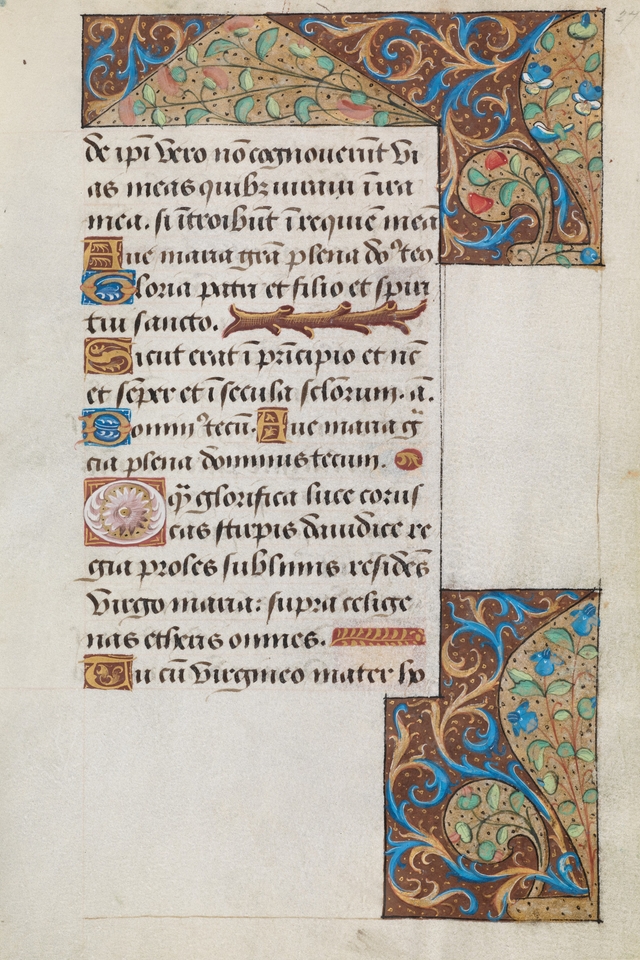 de ipi vero nō cognouerūt vi
as meas quibꝫ iuraui ī ira
mea. si ītroibūt ī requiē meā
Aue maria grā plena dōꝰ tecū
Gloria patri et filio et spiri
tui sancto.
Sicut erat ī prīcipio et nc̄
et sēper et ī secula sclorum. a.
Dominꝰ tecū. Aue maria g̈
cia plena dominus tecum.
O q̄ glorifica luce corus
cas stirpis dauidice re
gia proles sublimis residēs
Virgo maria: supra celige
nas etheris omnes.
Tu cū virgineo mater ho